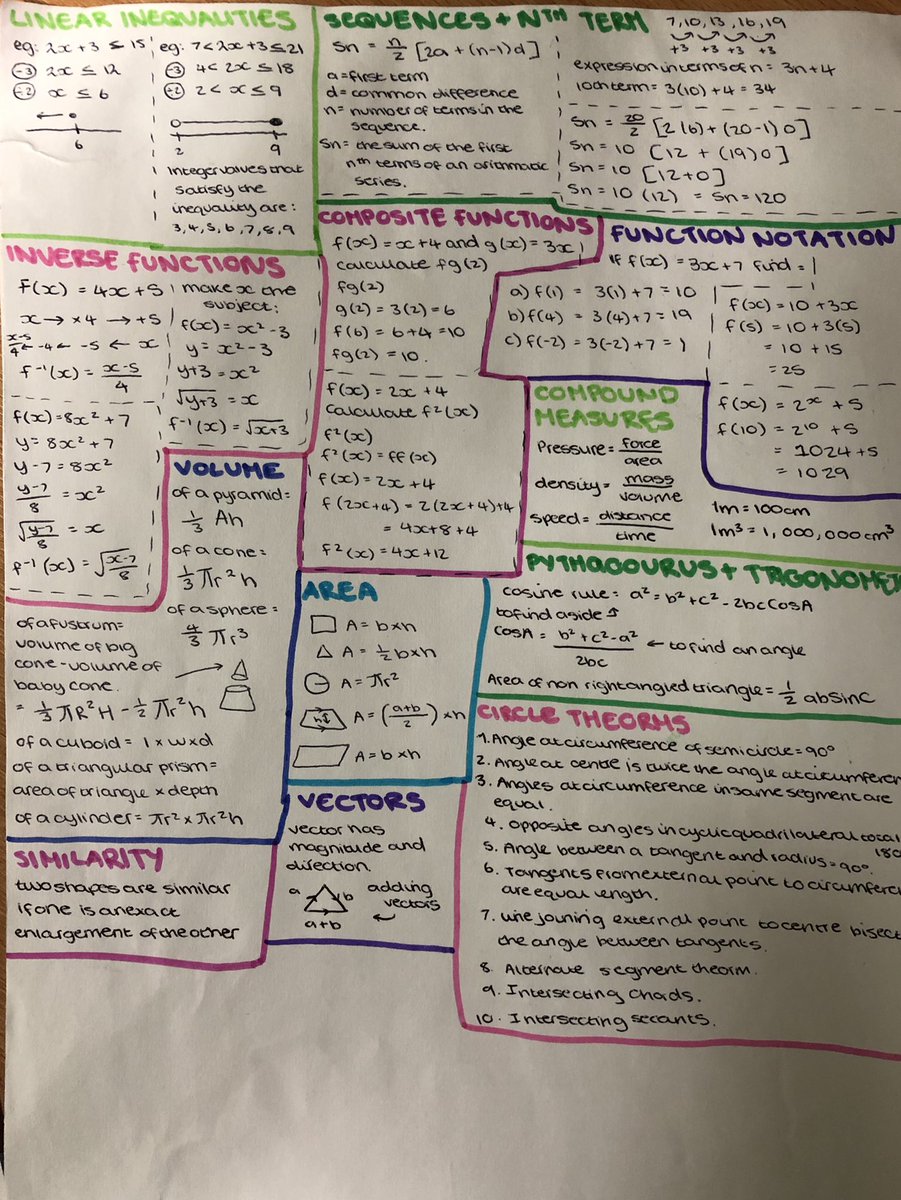 LINEAR INEQUALITIES
eg: 2x + 3 ≤ 15
-3 2x ≤ 12
÷2 x ≤ 6
6
eg: 7 < 2x + 3 ≤ 21
-3 4 < 2x ≤ 18
÷2 2 < x ≤ 9
2 9
Integer values that
satisfy the
inequality are:
3,4,5,6,7,8,9
SEQUENCES + NTH TERM
Sn = n/2 [2a + (n-1)d]
a = first term
d = common difference
n = number of terms in the
sequence.
Sn = the sum of the first
nth terms of an arithmatic
series.
7, 10, 13, 16, 19
+3 +3 +3 +3
expression in terms of n = 3n+4
10th term = 3(10) + 4 = 34
Sn = 20/2 [2(6) + (20-1)0]
Sn = 10 [12 + (19)0]
Sn = 10 [12+0]
Sn = 10 (12) = Sn = 120
INVERSE FUNCTIONS
F(x) = 4x + 5
x → ×4 → +5
x-5/4 ← ÷4 ← -5 ← x
f⁻¹(x) = x-5/4
make x the
subject:
f(x) = x² - 3
y = x² - 3
y+3 = x²
√y+3 = x
f⁻¹(x) = √x+3
f(x) = 8x² + 7
y = 8x² + 7
y - 7 = 8x²
y-7/8 = x²
√y-7/8 = x
f⁻¹(x) = √x-7/8
COMPOSITE FUNCTIONS
f(x) = x+4 and g(x) = 3x
calculate fg(2)
fg(2)
g(2) = 3(2) = 6
f(6) = 6+4 = 10
fg(2) = 10.
f(x) = 2x + 4
calculate f²(x)
f²(x)
f²(x) = ff(x)
f(x) = 2x + 4
f(2x+4) = 2(2x+4)+4
= 4x+8+4
f²(x) = 4x+12
FUNCTION NOTATION
If f(x) = 3x+7 find =
a) f(1) = 3(1) + 7 = 10
b) f(4) = 3(4) + 7 = 19
c) f(-2) = 3(-2) + 7 = 1
f(x) = 10 + 3x
f(5) = 10 + 3(5)
= 10 + 15
= 25
f(x) = 2ˣ + 5
f(10) = 2¹⁰ + 5
= 1024 + 5
= 1029
COMPOUND
MEASURES
Pressure = force/area
density = mass/volume
speed = distance/time
1m = 100cm
1m³ = 1,000,000cm³
VOLUME
of a pyramid =
1/3 Ah
of a cone =
1/3 πr²h
of a sphere =
4/3 πr³
of a fustrum =
volume of big
cone - volume of
baby cone.
= 1/3 πR²H - 1/2 πr²h
of a cuboid = l × w × d
of a triangular prism =
area of triangle × depth
of a cylinder = πr² × πr²h
AREA
A = b×h
A = ½b×h
A = πr²
h A = (a+b/2) × h
A = b×h
PYTHAGOURUS + TRIGONOMET
cosine rule: a² = b² + c² - 2bcCosA
to find a side
CosA = b² + c² - a²/2bc ← to find an angle
Area of non right angled triangle = ½ abSinC
CIRCLE THEORMS
1. Angle at circumference of semicircle = 90°
2. Angle at centre is twice the angle at circumferen
3. Angles at circumference in same segment are
equal.
4. Opposite angles in cyclic quadrilateral total
180
5. Angle between a tangent and radius = 90°.
6. Tangents from external point to circumferen
are equal length.
7. Line joining external point to centre bisect
the angle between tangents.
8. Alternate segment theorm.
9. Intersecting chords.
10. Intersecting secants.
VECTORS
vector has
magnitude and
direction.
a b adding
vectors
a+b
SIMILARITY
two shapes are similar
if one is an exact
enlargement of the other